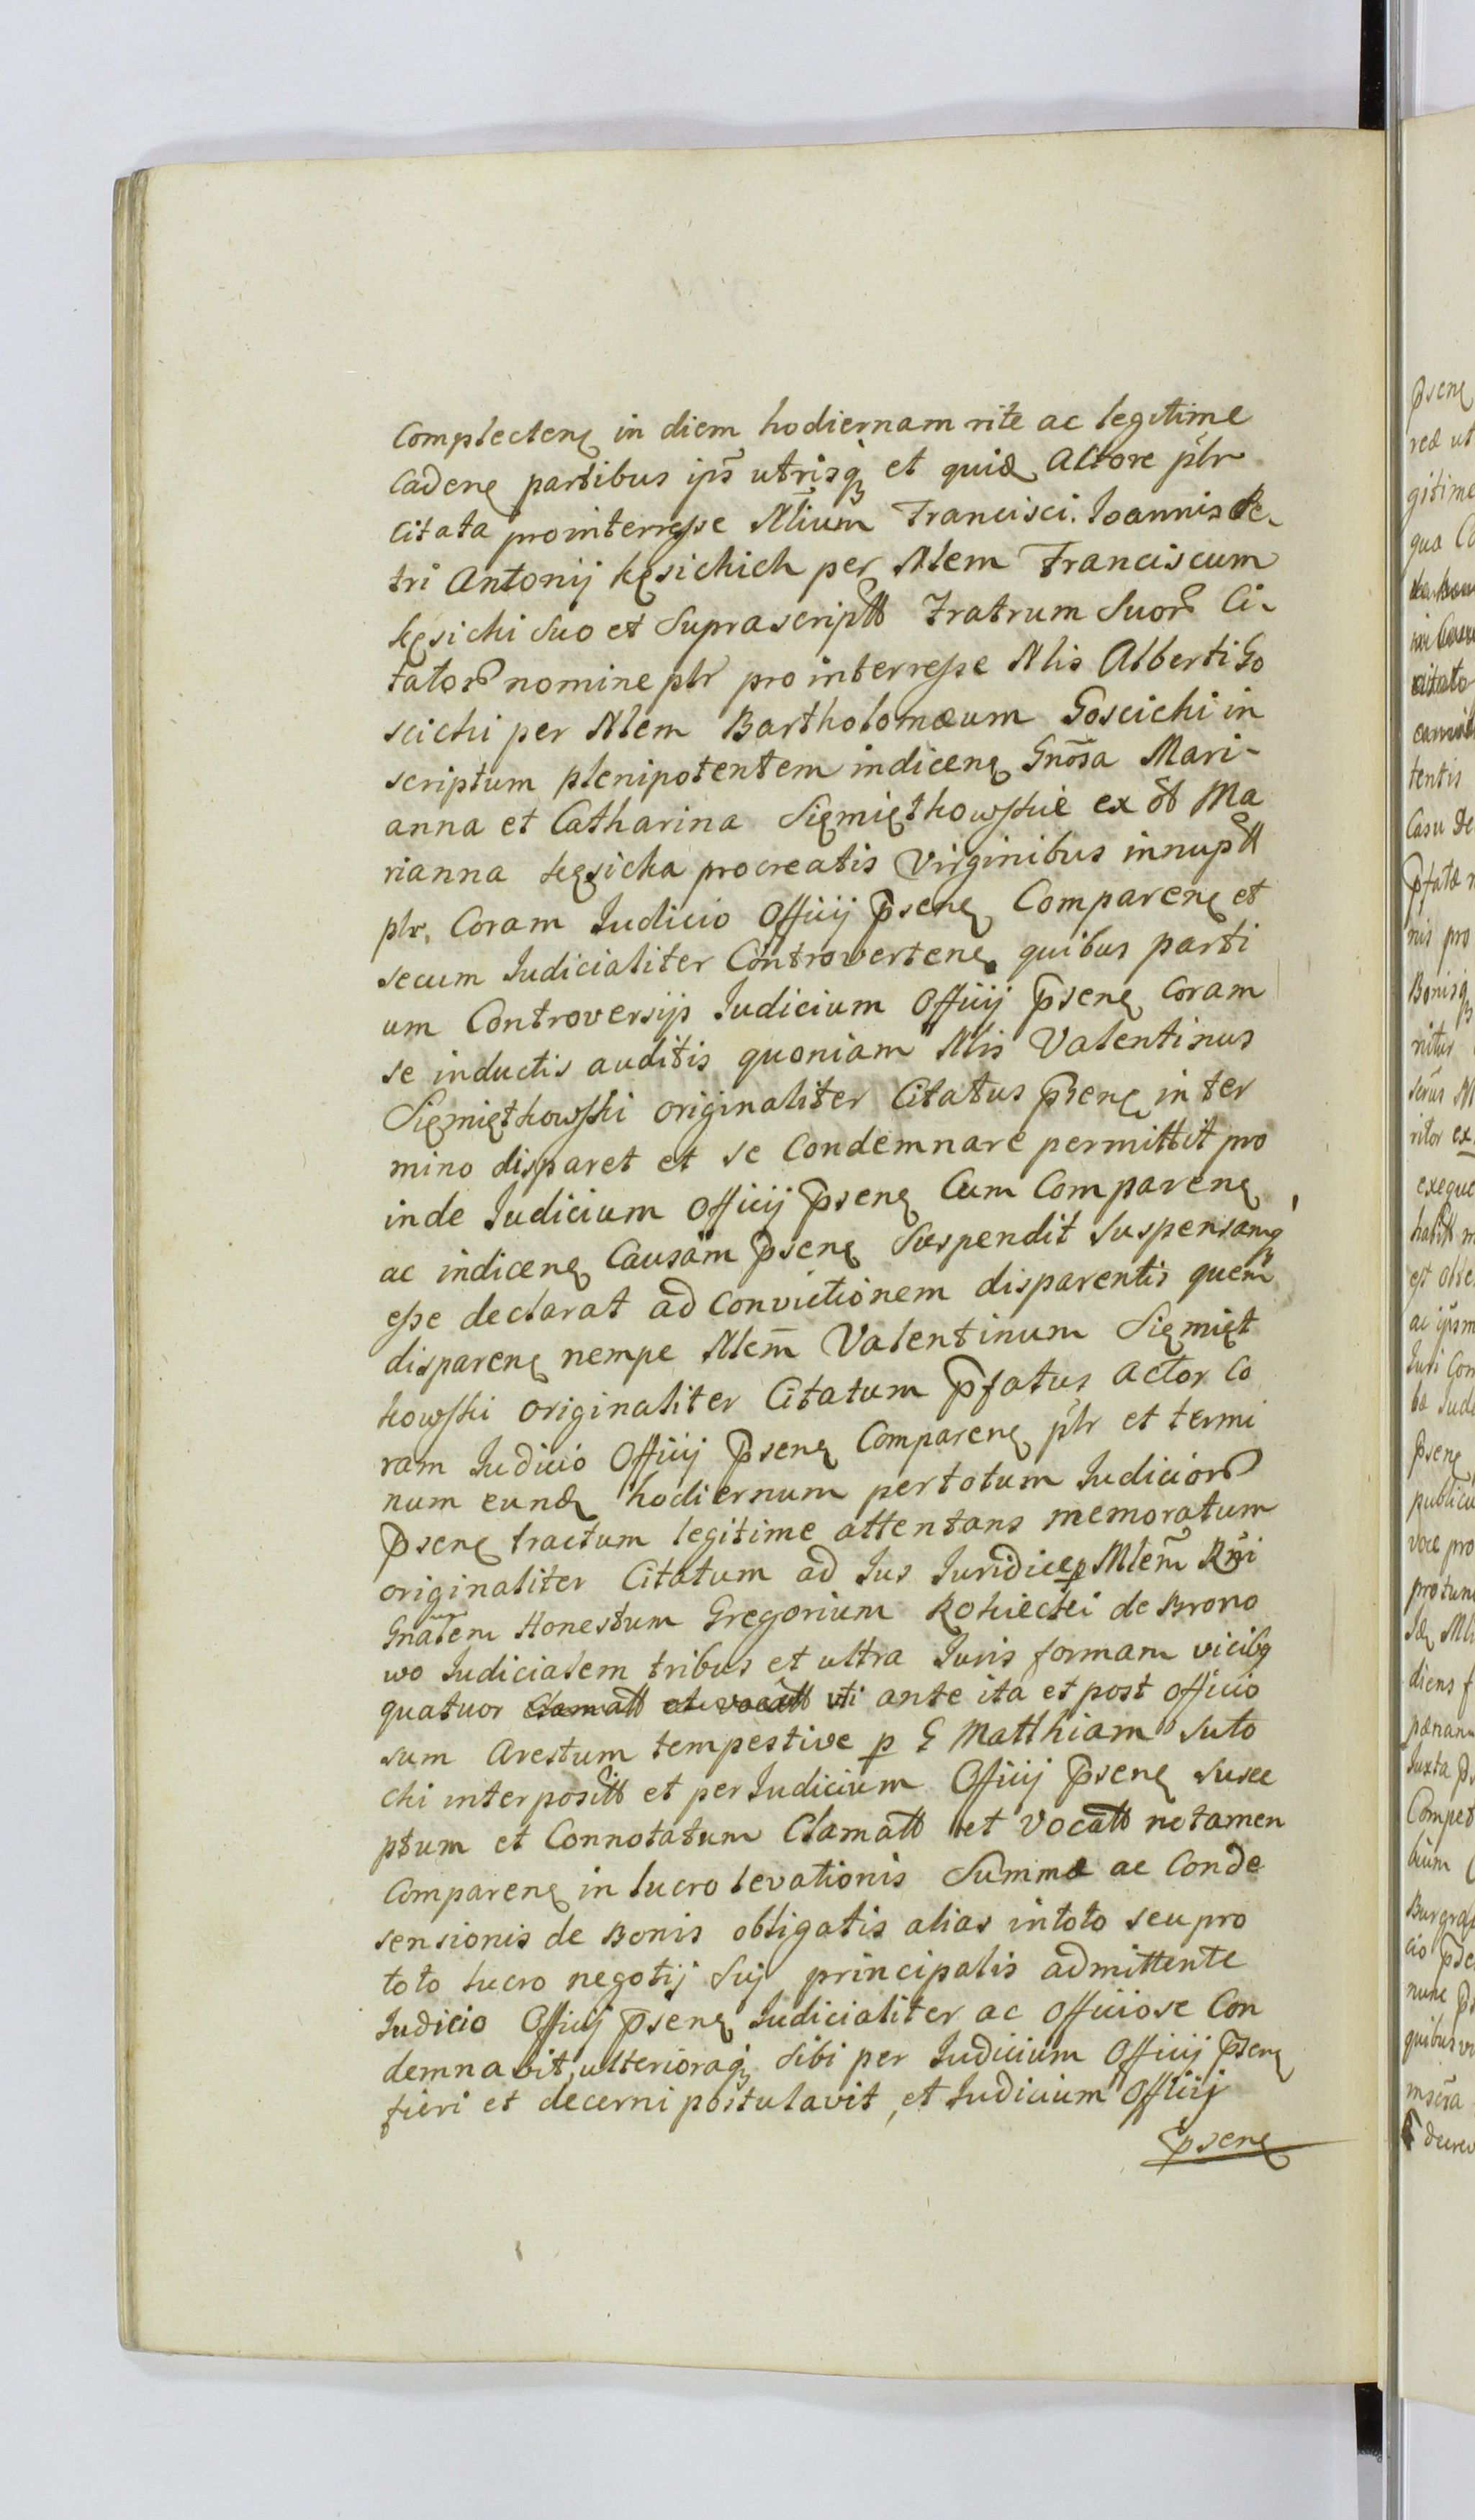 Complecten in diem hodiernam rite ac legitime
Caden partibus ips utrisq et quidē Actore plr
Citata prointerreſse Nlium Francisci Ioannis Pe-
tri Antonij Kęsickich per Nlem Franciscum
Kęsicki Suo et Suprascriptt Fratrum Suor Ci-
tator nomine plr pro interreſse Nlis Alberti Go
scicki per Nlem Bartholomæum Goscicki in
scriptum plenipotentem indicen Gnosa Mari-
anna et Catharina Siemiętkowſkie ex ōlt Ma
rianna Kęsicka procreatis Virginibus innuptt
plr. Coram Iudicio Officij Psen Comparen et
secum Iudicialiter Controverten quibus parti
um Controversijs Iudicium Officij Psen Coram
se inductis auditis quoniam Nlis Valentinus
Siemiętkowſki originaliter Citatus Psen in ter
mino disparet et se Condemnare permittit pro
inde Iudicium Officij Psen Cum Comparen
ac indicen Causam Psen Suspendit Suspensamq
eſse declarat ad Convictionem disparentis quem
disparen nempe Nlem Valentinum Siemięt
kowſki originaliter Citatum Pfatus Actor Co
ram Iudicio Officij Psen Comparen plr et termi
num eund hodiernum pertotum Iudicior
Psen tractum legitime attentans memoratum
originaliter Citatum ad Ius Iuridice p Mlem Rni
Gnalem Honestum Gregorium Rokiecki de Brono
wo Iudicialem tribus et ultra Iuris formam vicibq
quatuor Clamatt et vocatt uti ante ita et post officio
sum Arestum tempestive p G Matthiam Suto
cki interpositt et per Iudicium Officij Psen susce
ptum et Connotatum Clamatt et Vocatt netamen
Comparen in lucro levationis Summæ ac Conde
sensionis de Bonis obligatis alias in toto seu pro
toto lucro negotij Sui principalis admittente
Iudicio Officij Psen Iudicialiter ac officiose Con
demnavit, ulterioraq Sibi per Iudicium Officij Psen
fieri et decerni postulavit, et Iudicium Officij
Psen